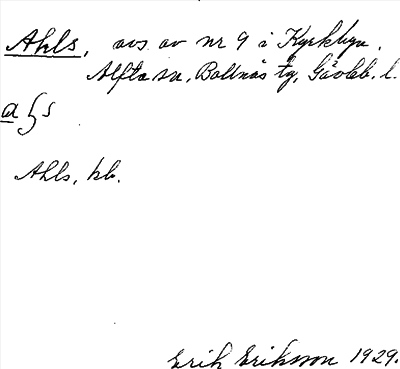 Ahls, avs. av nr 9 i Kyrkbyn.
Alfta sn, Bollnäs tg, Gävleb. l.
Ahls, kb.
Erik Eriksson 1929.